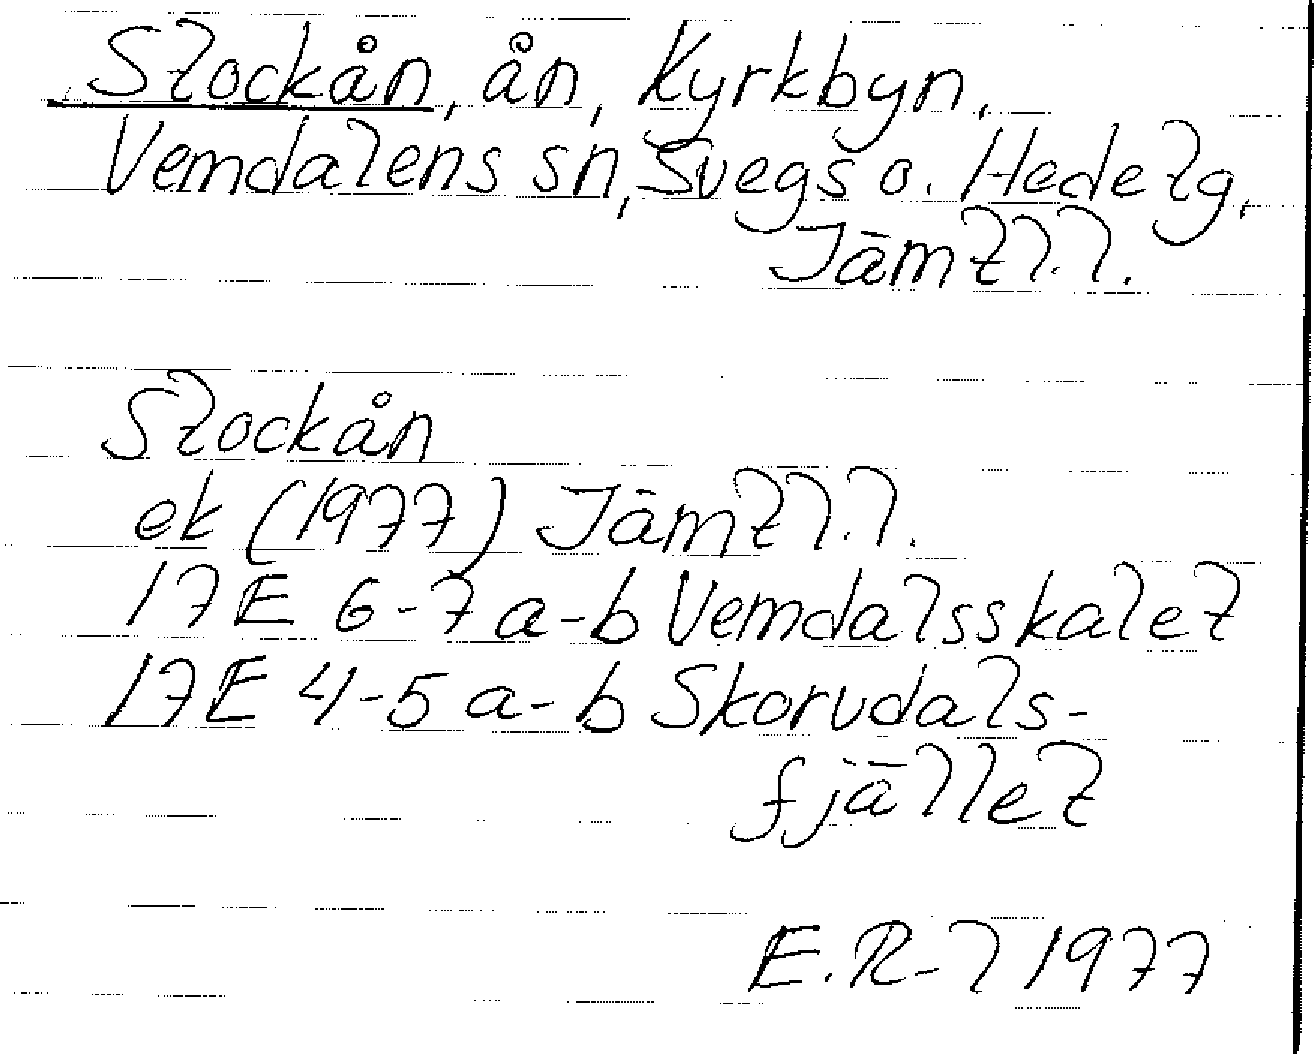 Stockån, ån, Kyrkbyn,
Vemdalens sn, Svegs o. Hede tg,
Jämtl. l.
Stockån
ek (1977) Jämtl. l.
17E 6-7 a-b Vemdalsskalet
17E 4-5 a-b Skorvdals-
fjället
E.R-l 1977